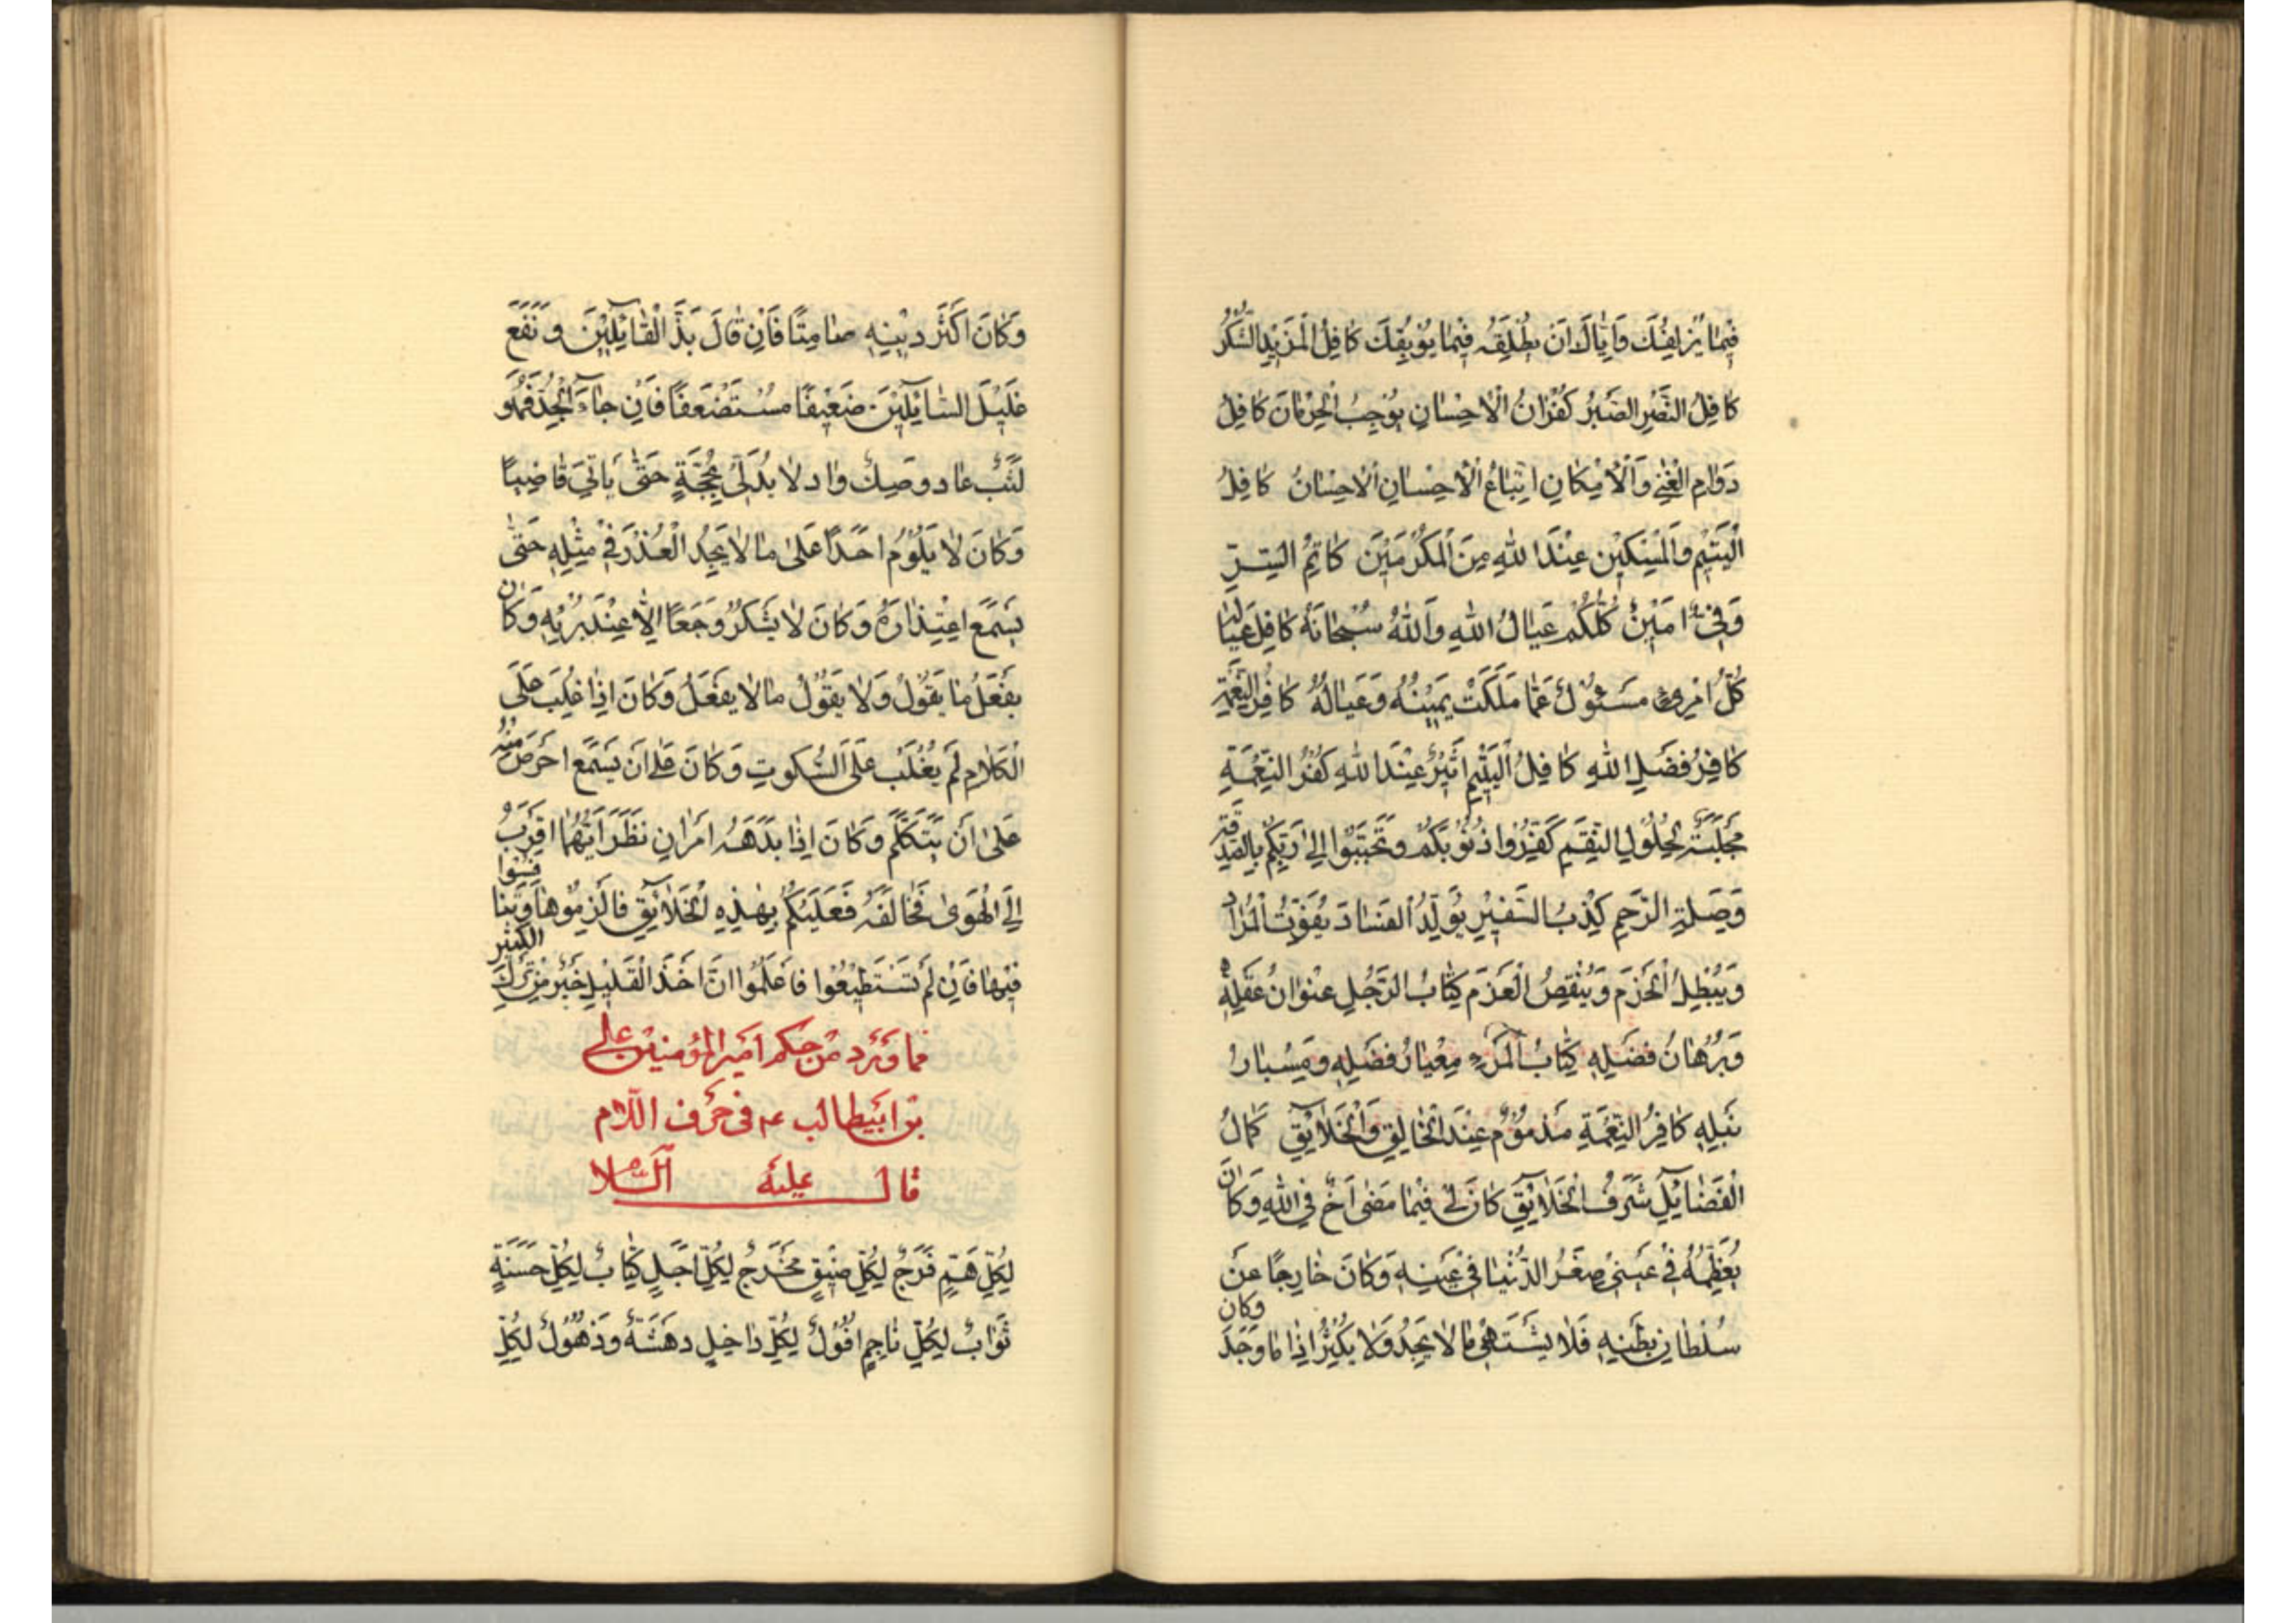 فِيمَا يُزْلِفُكَ وَإِيَّاكَ اَنْ تُطْلِقَهُ فِيمَا يُوبِقُكَ كَافِلُ الْمَزِيدِ الشُّكْرُ
كَافِلُ النَّصْرِ الصَّبْرُ كُفْرَانُ الْاِحْسَانِ يُوجِبُ الْحِرْمَانَ كَافِلُ
دَوَامِ الْغِنَى وَالْاِمْكَانِ اِتْبَاعُ الْاِحْسَانِ الْاِحْسَانَ كَافِلُ
الْيَتِيمِ وَالْمِسْكِينِ عِنْدَ اللهِ مِنَ الْمُكْرَمِينَ كَاتِمُ السِّرِّ
وَفِيٌّ اَمِينٌ كُلُّكُمْ عِيَالُ اللهِ وَاللهُ سُبْحَانَهُ كَافِلُ عِيَالِهِ
كُلُّ امْرِئٍ مَسْئُولٌ عَمَّا مَلَكَتْ يَمِينُهُ وَعِيَالُهُ كَافِرُ النِّعْمَةِ
كَافِرُ فَضْلِ اللهِ كَافِلُ الْيَتِيمِ اَثِيرٌ عِنْدَ اللهِ كُفْرُ النِّعْمَةِ
مَجْلَبَةٌ لِحُلُولِ النِّقَمِ كَفِّرُوا ذُنُوبَكُمْ وَتَحَبَّبُوا اِلَى رَبِّكُمْ بِالصَّدَقَةِ
وَصِلَةِ الرَّحِمِ كِذْبُ السَّفِيرِ يُوَلِّدُ الْفَسَادَ يُفَوِّتُ الْمُرَادَ
وَيُبْطِلُ الْحَزْمَ وَيُنْقِصُ الْعَزْمَ كِتَابُ الرَّجُلِ عُنْوَانُ عَقْلِهِ
وَبُرْهَانُ فَضْلِهِ كِتَابُ الْمَرْءِ مِعْيَارُ فَضْلِهِ وَمِسْبَارُ
نُبْلِهِ كَافِرُ النِّعْمَةِ مَذْمُومٌ عِنْدَ الْخَالِقِ وَالْخَلَايِقِ كَمَالُ
الْفَضَايِلِ شَرَفُ الْخَلَايِقِ كَانَ لِي فِيمَا مَضَى اَخٌ فِي اللهِ وَكَانَ
يُعَظِّمُهُ فِي عَيْنِي صِغَرُ الدُّنْيَا فِي عَيْنِهِ وَكَانَ خَارِجًا عَنْ
سُلْطَانِ بَطْنِهِ فَلَا يَشْتَهِي مَا لَا يَجِدُ وَلَا يُكْثِرُ اِذَا مَا وَجَدَ وَكَانَ
وَكَانَ اَكْثَرَ دِينِهِ صَامِتًا فَاِنْ قَالَ بَذَّ الْقَايِلِينَ وَنَفَعَ
غَلِيلَ السَّايِلِينَ ضَعِيفًا مُسْتَضْعَفًا فَاِنْ جَاءَ الْجِدُّ فَهُوَ
لَيْثُ عَاد وَصِيلُ وَاد لَا يُدْلِي بِحُجَّةٍ حَتَّى يَاْتِيَ قَاضِيًا
وَكَانَ لَا يَلُومُ اَحَدًا عَلَى مَا لَا يَجِدُ الْعُذْرَ فِي مِثْلِهِ حَتَّى
يَسْمَعَ اعْتِذَارَهُ وَكَانَ لَا يَشْكُرُ وَجَعًا اِلَّا عِنْدَ بُرْئِهِ وَكَانَ
يَفْعَلُ مَا يَقُولُ وَلَا يَقُولُ مَا لَا يَفْعَلُ وَكَانَ اِذَا غُلِبَ عَلَى
الْكَلَامِ لَمْ يُغْلَبْ عَلَى السُّكُوتِ وَكَانَ عَلَى اَنْ يَسْمَعَ اَحْرَصَ مِنْهُ
عَلَى اَنْ يَتَكَلَّمَ وَكَانَ اِذَا بَدَهَهُ اَمْرَانِ نَظَرَ اَيُّهُمَا اَقْرَبُ
اِلَى الْهَوَى فَخَالَفَهُ فَعَلَيْكُمْ بِهٰذِهِ الْخَلَايِقِ فَالْزَمُوهَا وَتَنَافَسُوا
فِيهَا فَاِنْ لَمْ تَسْتَطِيعُوا فَاعْلَمُوا اَنَّ اَخْذَ الْقَلِيلِ خَيْرٌ مِنْ تَرْكِ الْكَثِيرِ
مما وَرَدَ مِنْ حِكَم اَمير المُؤمنين على
بن ابيطالب عـ في حَرف اللَّام
قال عليه السَّلا
لِكُلِّ هَمٍّ فَرَجٌ لِكُلِّ ضِيقٍ مَخْرَجٌ لِكُلِّ اَجَلٍ كِتَابٌ لِكُلِّ حَسَنَةٍ
ثَوَابٌ لِكُلِّ نَاجِمٍ اُفُولٌ لِكُلِّ دَاخِلٍ دَهْشَةٌ وَذُهُولٌ لِكُلِّ